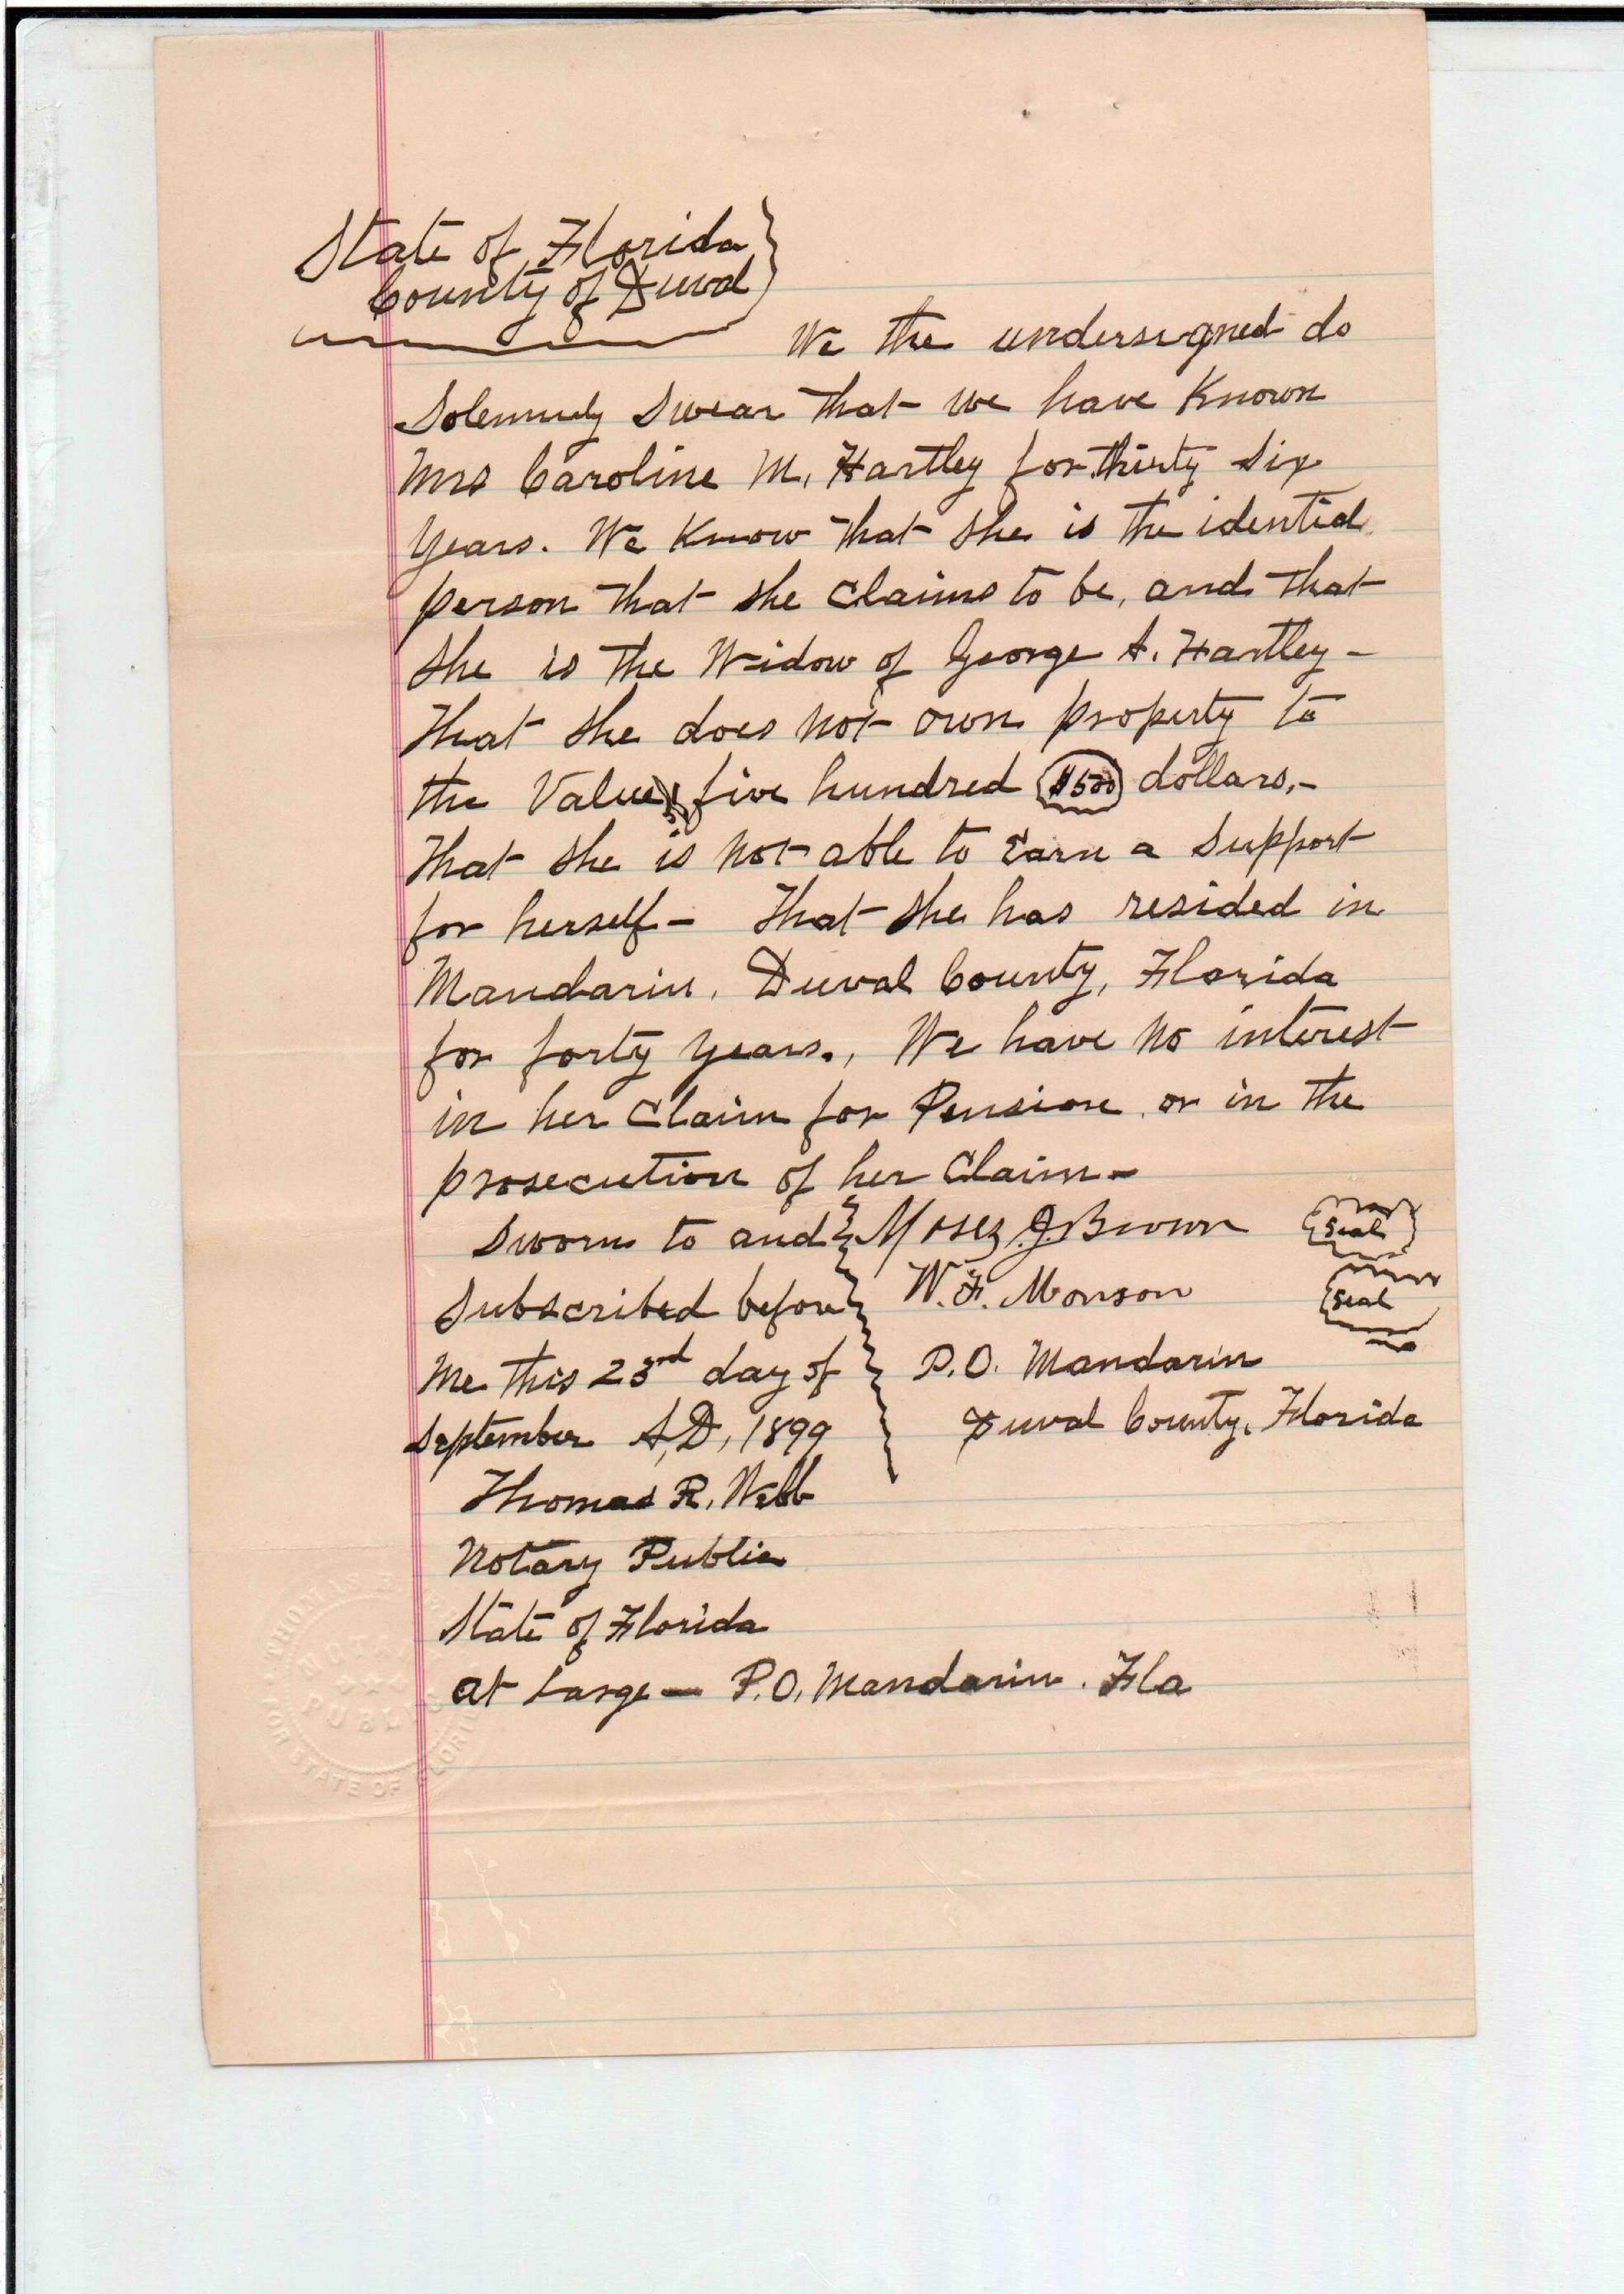 State of Florida
County of Duval
We the undersigned do
Solemnly Swear that we have Known
Mrs Caroline M. Hartley for thirty Six
Years. We Know that She is the identicl
person that she Claims to be, and that
She is the Widow of George A. Hartley -
That she does not own property to
the Value of five hundred $500 dollars.-
That she is not able to Earn a Support
for herself - That she has resided in
Mandarin, Duval County, Florida
for forty years., We have no interest
in her Claim for Pension, or in the
prosecution of her Claim -
Sworn to and Moses J. Brown Seal
Subscribed before W. F. Monson Seal
Me this 23rd day of P.O. Mandarin
September A.D. 1899 Duval County, Florida
Thomas R. Webb
Notary Public
State of Florida
at Large — P.O. Mandarin. Fla
THOMAS
PUBLIC
FOR STATE OF FLORIDA